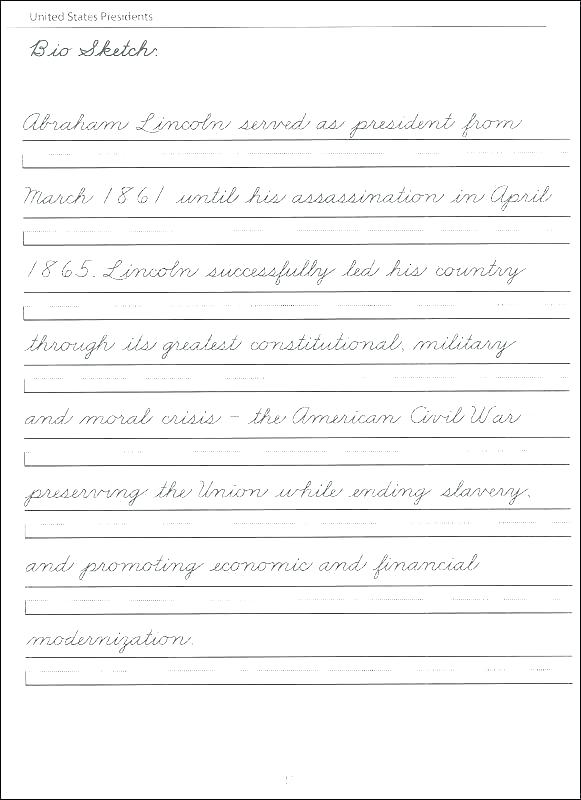 United States Presidents
Bio Sketch:
Abraham Lincoln served as president from
March 1861 until his assassination in April
1865. Lincoln successfully led his country
through its greatest constitutional, military
and moral crisis – the American Civil War
preserving the Union while ending slavery,
and promoting economic and financial
modernization.